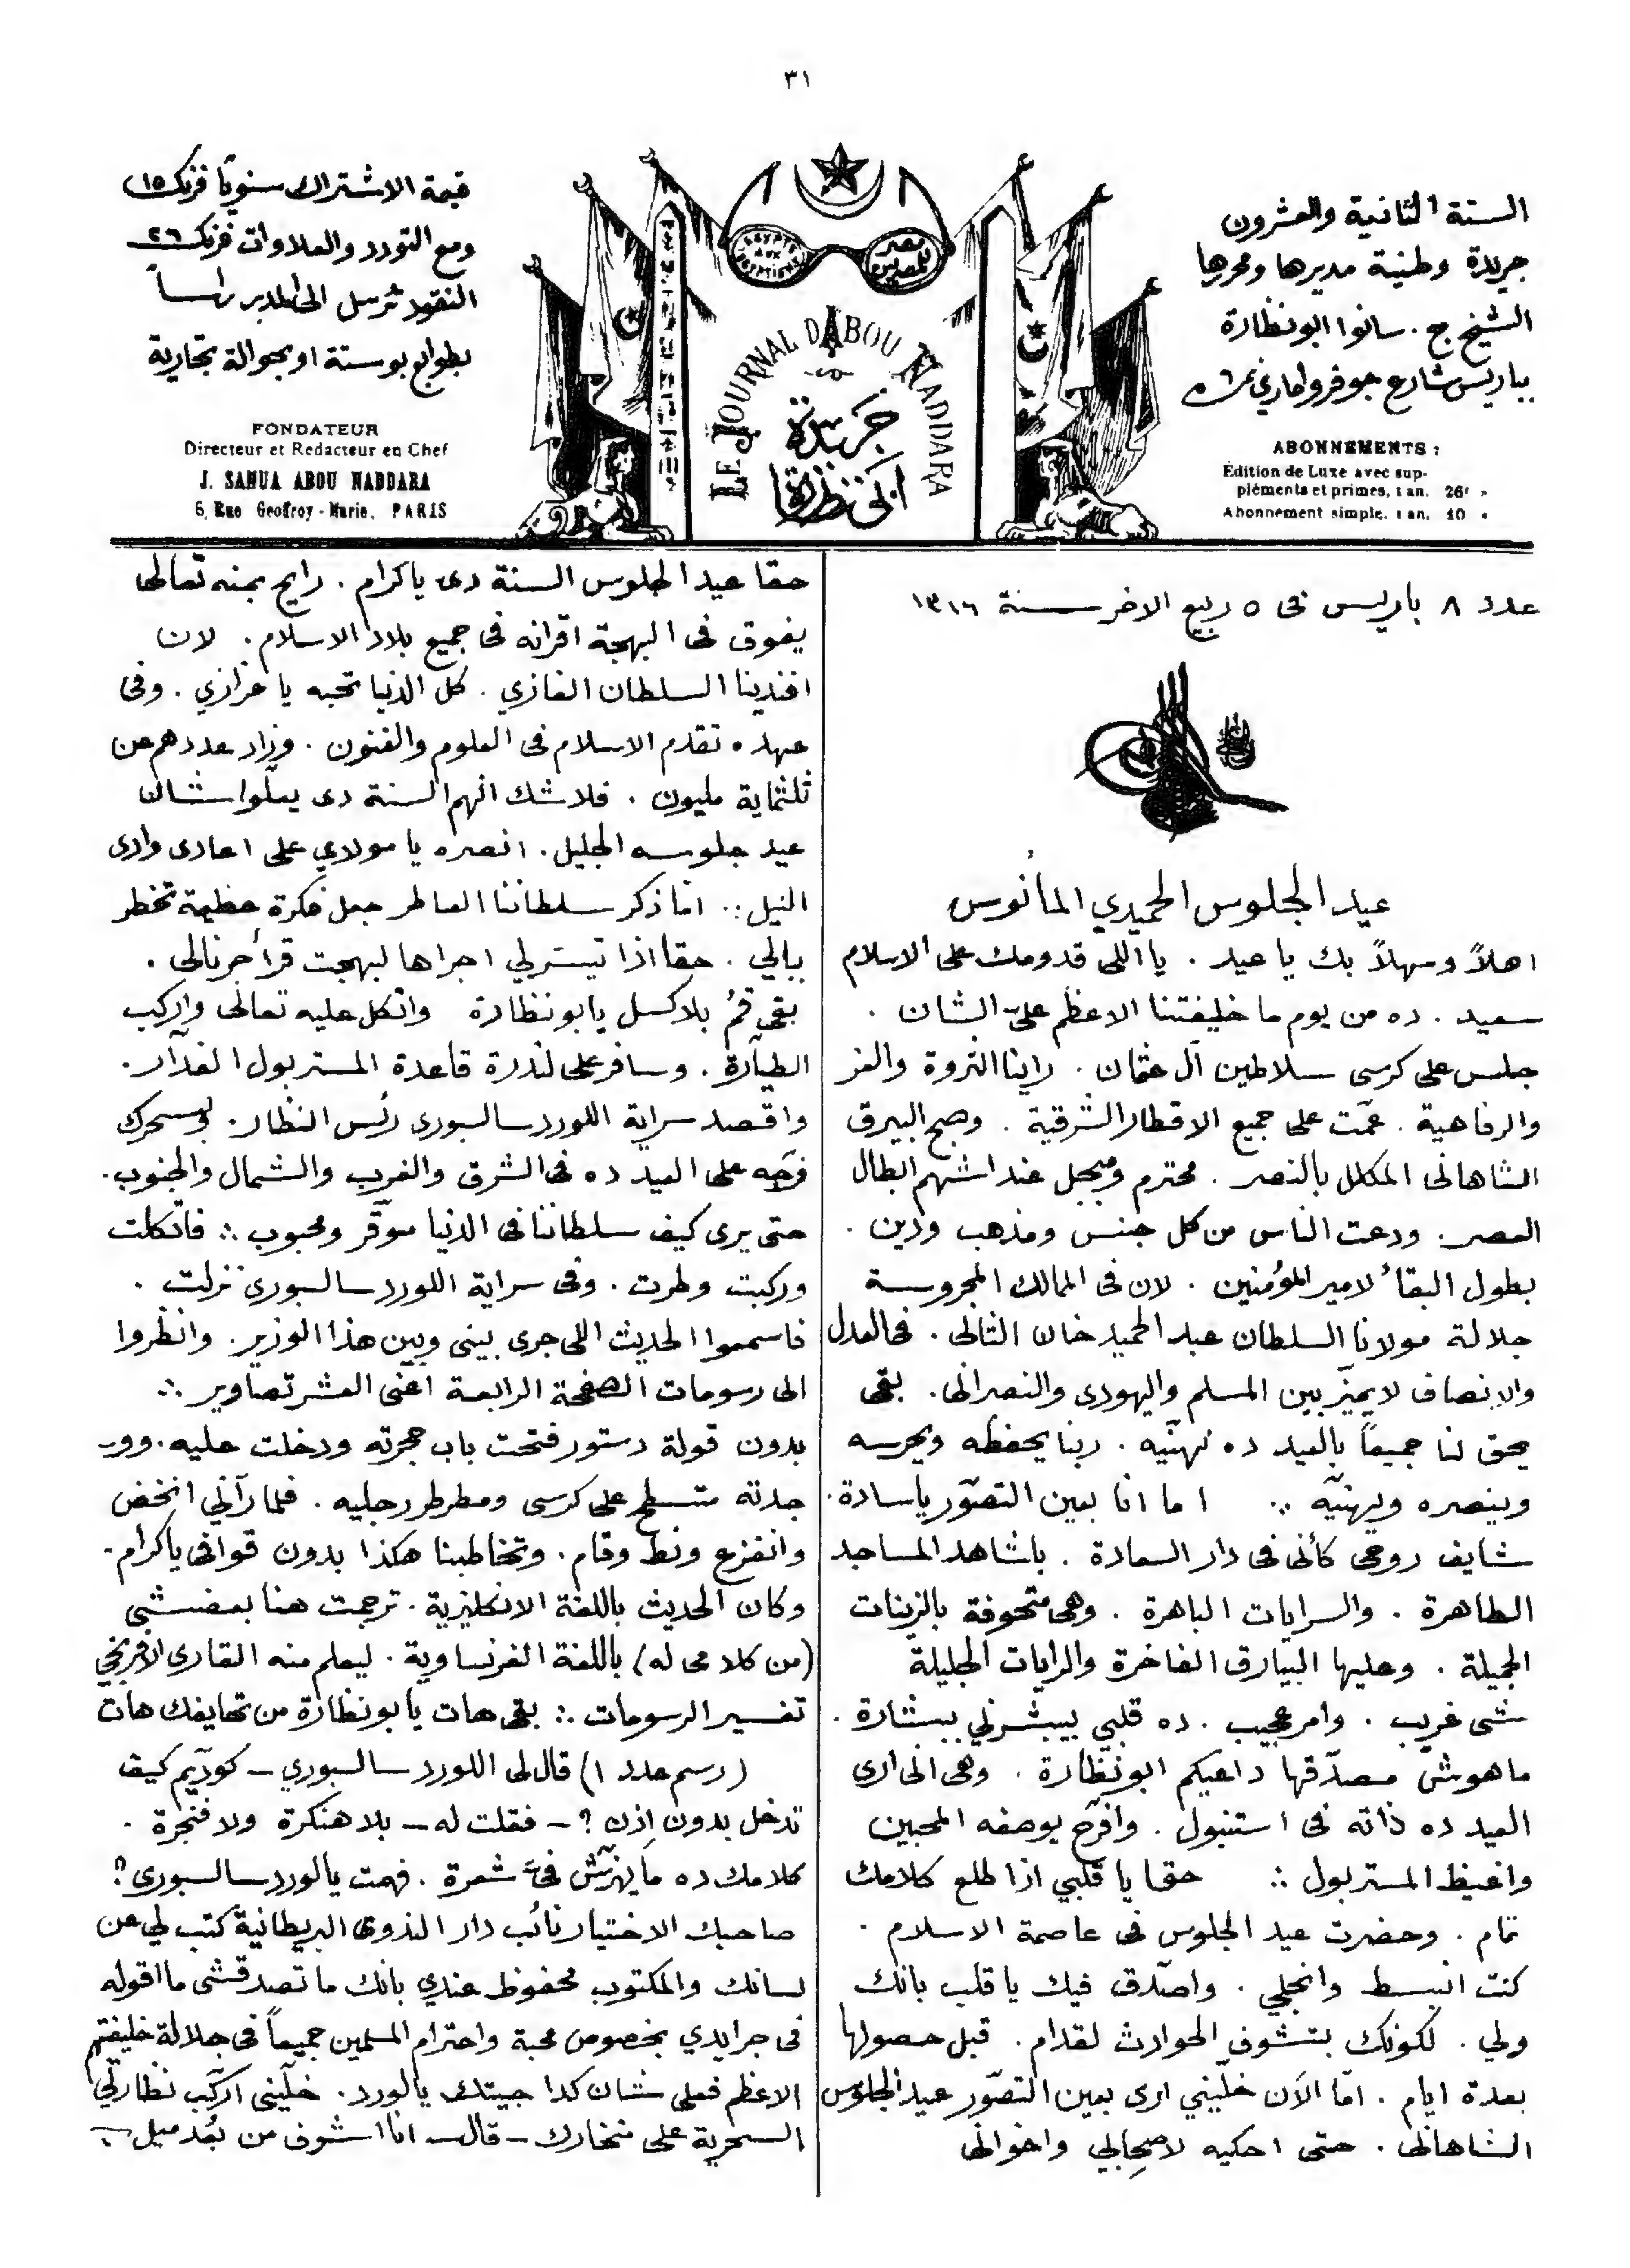 ٣١
السنة الثانية والعشرون
جريدة وطنية مديرها ومحررها
الشيخ ج. سانوا ابو نظارة
بباريس شارع جوفروا مارى نمرة ٦
ABONNEMENTS :
Edition de Luxe avec sup-
pléments et primes, 1 an. 26f »
Abonnement simple. 1 an. 10 »
EGYPTE AUX EGYPTIENS
مصر للمصريين
LE JOURNAL D'ABOU NADDARA
جريدة
ابى نظارة
قيمة الاشتراك سنويًا فرنك ١٥
ومع التورد والعلاوات فرنك ٢٦
النقود ترسل الى المدير راسـاً
بطوابع بوستة او بحوالة تجارية
FONDATEUR
Directeur et Redacteur en Chef
J. SANUA ABOU NADDARA
6, Rue Geoffroy-Marie, PARIS
عدد ٨ باريس فى ٥ ربيع الاخر سنة ١٣١٦
عيد الجلوس الحميدي المأنوس
اهلاً وسهلاً بك يا عيد . يا اللى قدومك على الاسلام
سعيد . ده من يوم ما خليفتنا الاعظم علىّ الشان .
جلس على كرسى سلاطين آل عثمان . راينا الثروة والعز
والرفاهية . عمّت على جميع الاقطار الشرقية . وصبح البيرق
الشاهانى المكلل بالنصر . محترم ومبجل عند اشهم ابطال
العصر . ودعت الناس من كل جنس ومذهب ودين .
بطول البقأ لامير المؤمنين . لان فى الممالك المحروسة
جلالة مولانا السلطان عبد الحميد خان الثانى . فى العدل
والانصاف لا يميّز بين المسلم واليهودى والنصرانى . بقى
يحق لنا جميعاً بالعيد ده نهنّيه . ربنا يحفظه ويحرسه
وينصره ويهنّيه ∴ اما انا بعين التصوّر يا سادة .
شايف روحى كأنى فى دار السعادة . باشاهد المساجد
الطاهرة . والسرايات الباهرة . وهى متحوفة بالزينات
الجميلة . وعليها البيارق الفاخرة والرايات الجليلة
شى غريب . وامر عجيب . ده قلبي بيبشرني ببشارة .
ماهوش مصدّقها داعيكم ابو نظارة . وهى انى ارى
العيد ده ذاته فى استنبول . وافرّح بوصفه المحبين
واغيظ المستربول ∴ حقا يا قلبي اذا طلع كلامك
تمام . وحضرت عيد الجلوس فى عاصمة الاسلام .
كنت انبسط وانجلي . واصدّق فيك يا قلب بانك
ولي . لكونك بتشوف الحوادث لقدام . قبل حصولها
بعدة ايام . امّا الآن خلّيني ارى بعين التصوّر عيد الجلوس
الشاهانى . حتى احكيه لاصحابي واخوانى
حقا عيد الجلوس السنة دى يا كرام . رايح بمنه تعالى
يفوق فى البهجة اقرانه فى جميع بلاد الاسلام . لان
افندينا السلطان الغازي . كل الدنيا تحبه يا عزازي . وفى
عهده تقدم الاسلام فى العلوم والفنون . وزاد عددهم عن
ثلثماية مليون . فلا شك انهم السنة دى يعلّوا شان
عيد جلوسه الجليل . انصره يا مولاي على اعادى وادى
النيل ∴ امّا ذكر سلطاننا العاطر جعل فكرة عظيمة تخطر
ببالي . حقا اذا تيسّر لي اجراها لبهجت قرأ جرنالى .
بقى قُم بلا كسل يابو نظارة واتكل عليه تعالى واركب
الطيّارة . وسافر على لندرة قاعدة المستربول الغدّار .
واقصد سراية اللورد سالسبورى رئس النظار . وبسحرك
فرّجه على العيد ده فى الشرق والغرب والشمال والجنوب .
حتى يرى كيف سلطاننا فى الدنيا موقّر ومحبوب ∴ فاتكلت
وركبت وطرت . وفى سراية اللورد سالسبورى نزلت .
فاسمعوا الحديث اللى جرى بينى وبين هذا الوزير . وانظروا
الى رسومات الصفحة الرابعة اعنى العشر تصاوير ∴
بدون قولة دستور فتحت باب حجرته ودخلت عليه . وو-
جدته متسطح على كرسى ومطرطر رجليه . فلما رآنى انخض
وانفزع ونط وقام . وتخاطبنا هكذا بدون قوافى يا كرام .
وكان الحديث باللغة الانكليزية . ترجمت هنا بعض شى
(من كلامى له) باللغة الفرنساوية . ليعلم منه القارى الافرنجي
تفسير الرسومات ∴ بقى هات يابو نظارة من تحايفك هات
(رسم عدد ١) قال لى اللورد سالسبوري ــ كودّيم كيف
تدخل بدون اذن ؟ ــ فقلت له ــ بلا هنكرة ولا فنجرة .
كلامك ده ما يهزّش فىّ شعرة . فهمت يا لورد سالسبورى ؟
صاحبك الاختيار نائب دار الندوى البريطانية كتب لي عن
لسانك والمكتوب محفوظ عندي بانك ما تصدقشى ما اقوله
فى جرايدي بخصوص محبة واحترام المسلمين جميعاً فى جلالة خليفتهم
الاعظم فعلى شان كدا جيتك يا لورد . خلّينى اركّب نظارتي
السحرية على منخارك ــ قال ــ انا اشوف من بُعد ميل